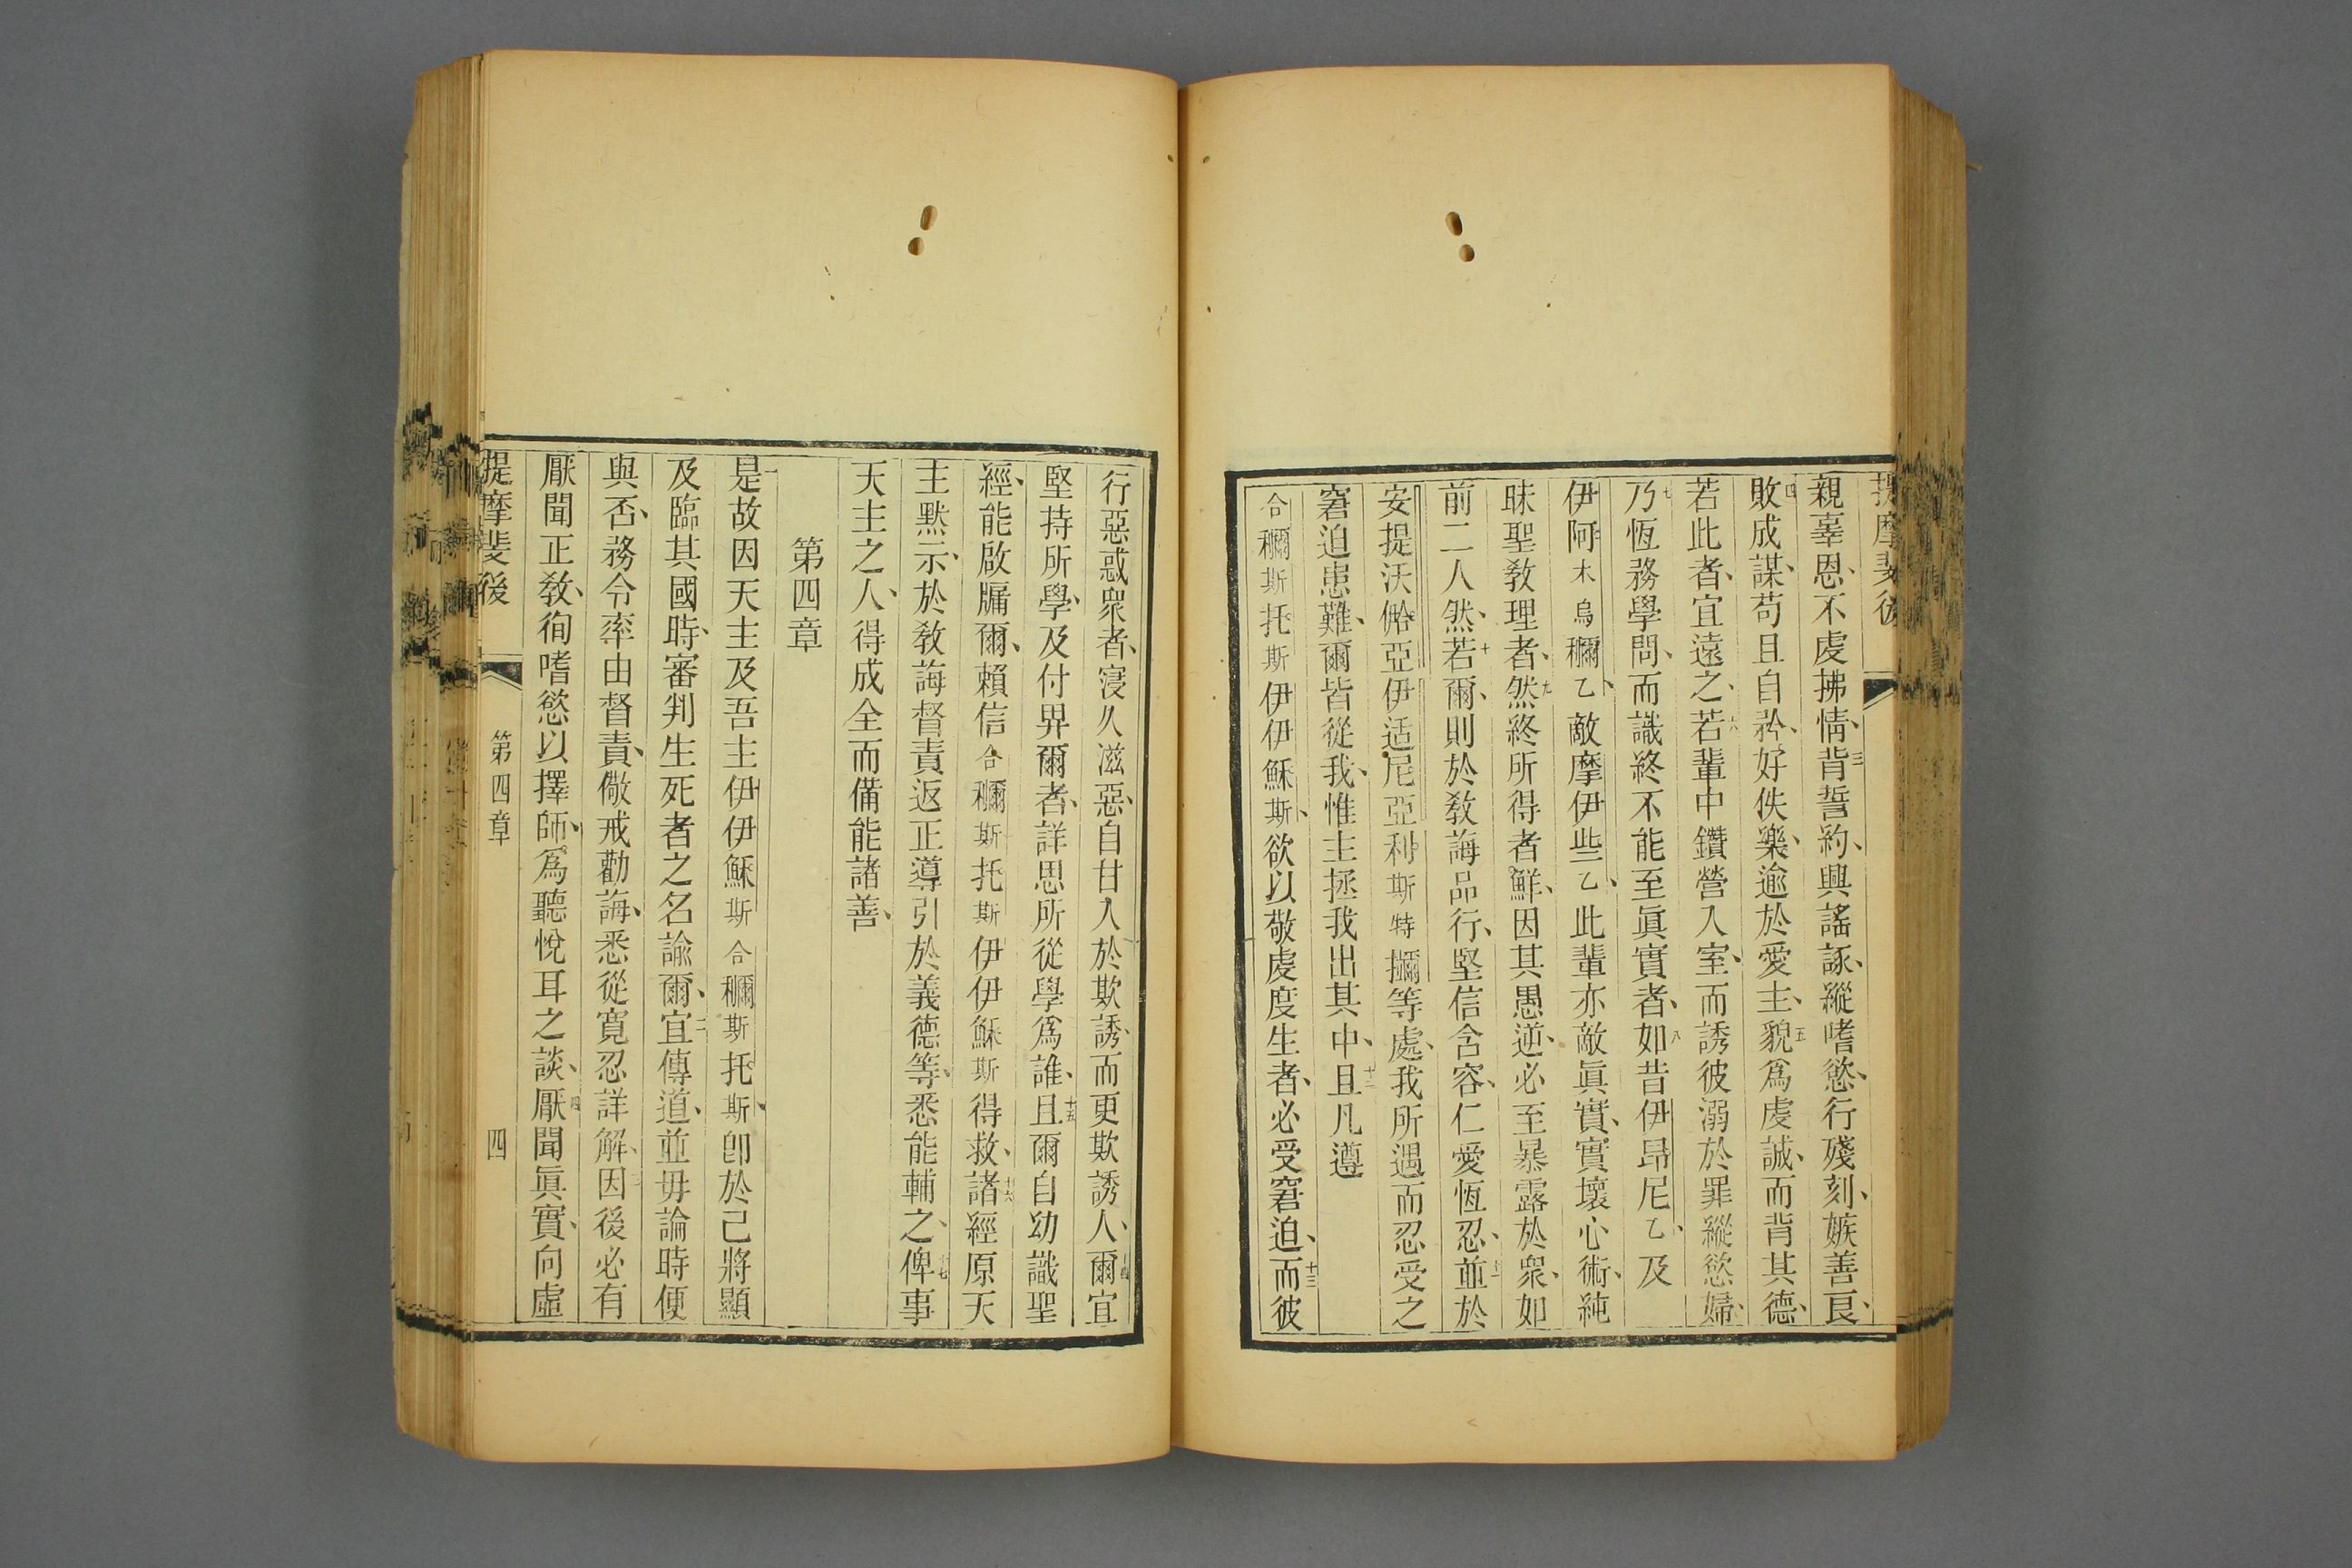 提摩斐後
親辜恩、不虔拂情、三背誓約、興謠諑、縱嗜慾、行殘刻、嫉善良、
四敗成謀、苟且自矜、好佚樂、逾於愛主、五貌爲虔誠、而背其德、
若此者、宜遠之、六若輩中鑽營入室、而誘彼溺於罪縱慾婦、
七乃恆務學問、而識終不能至眞實者、八如昔伊昂尼乙、及
伊阿木烏穪乙、敵摩伊些乙、此輩亦敵眞實、實壞心術、純
昧聖教理者、九然終所得者鮮、因其愚逆、必至暴露於衆、如
前二人然、十若爾、則於教誨品行、堅信含容、仁愛恆忍、十一並於
安提沃俻亞伊适尼亞利斯特攦等處、我所遇而忍受之
窘迫患難、爾皆從我、惟主拯我出其中、十二且凡遵
合穪斯托斯伊伊穌斯、欲以敬虔度生者、必受窘迫、十三而彼
行惡惑衆者、寖久滋惡、自甘入於欺誘、而更欺誘人、十四爾宜
堅持所學、及付畀爾者、詳思所從學爲誰、十五且爾自幼識聖
經、能啟牖爾、賴信合穪斯托斯伊伊穌斯得救、十六諸經原天
主默示、於教誨督責返正導引於義德等、悉能輔之、十七俾事
天主之人、得成全而備能諸善、
第四章
一是故因天主及吾主伊伊穌斯合穪斯托斯、卽於己將顯
及臨其國時、審判生死者之名諭爾、二宜傳道、並毋論時便
與否、務令率由督責、儆戒勸誨、悉從寬忍詳解、三因後必有
厭聞正教、徇嗜慾以擇師、爲聽悅耳之談、四厭聞眞實、向虛
提摩斐後
第四章
四